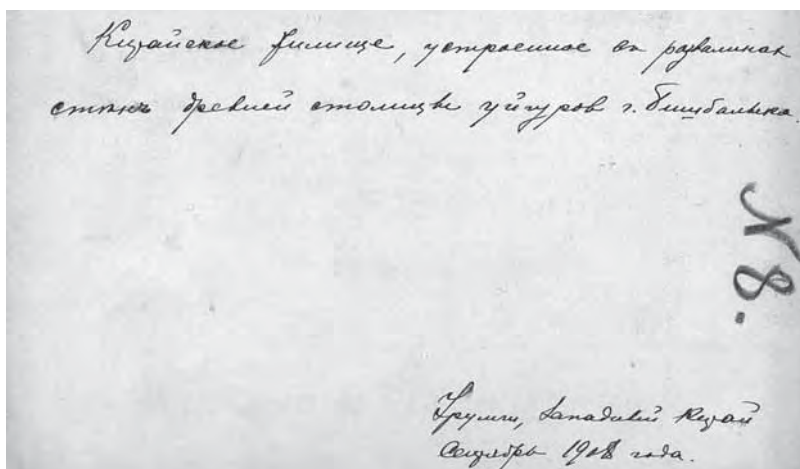 Китайское жилище, устроенное въ развалинах
стѣнъ древней столицы уйгуров г. Бишбалыка.
N 8.
Урумчи, Западный Китай
Сентябрь 1908 года.